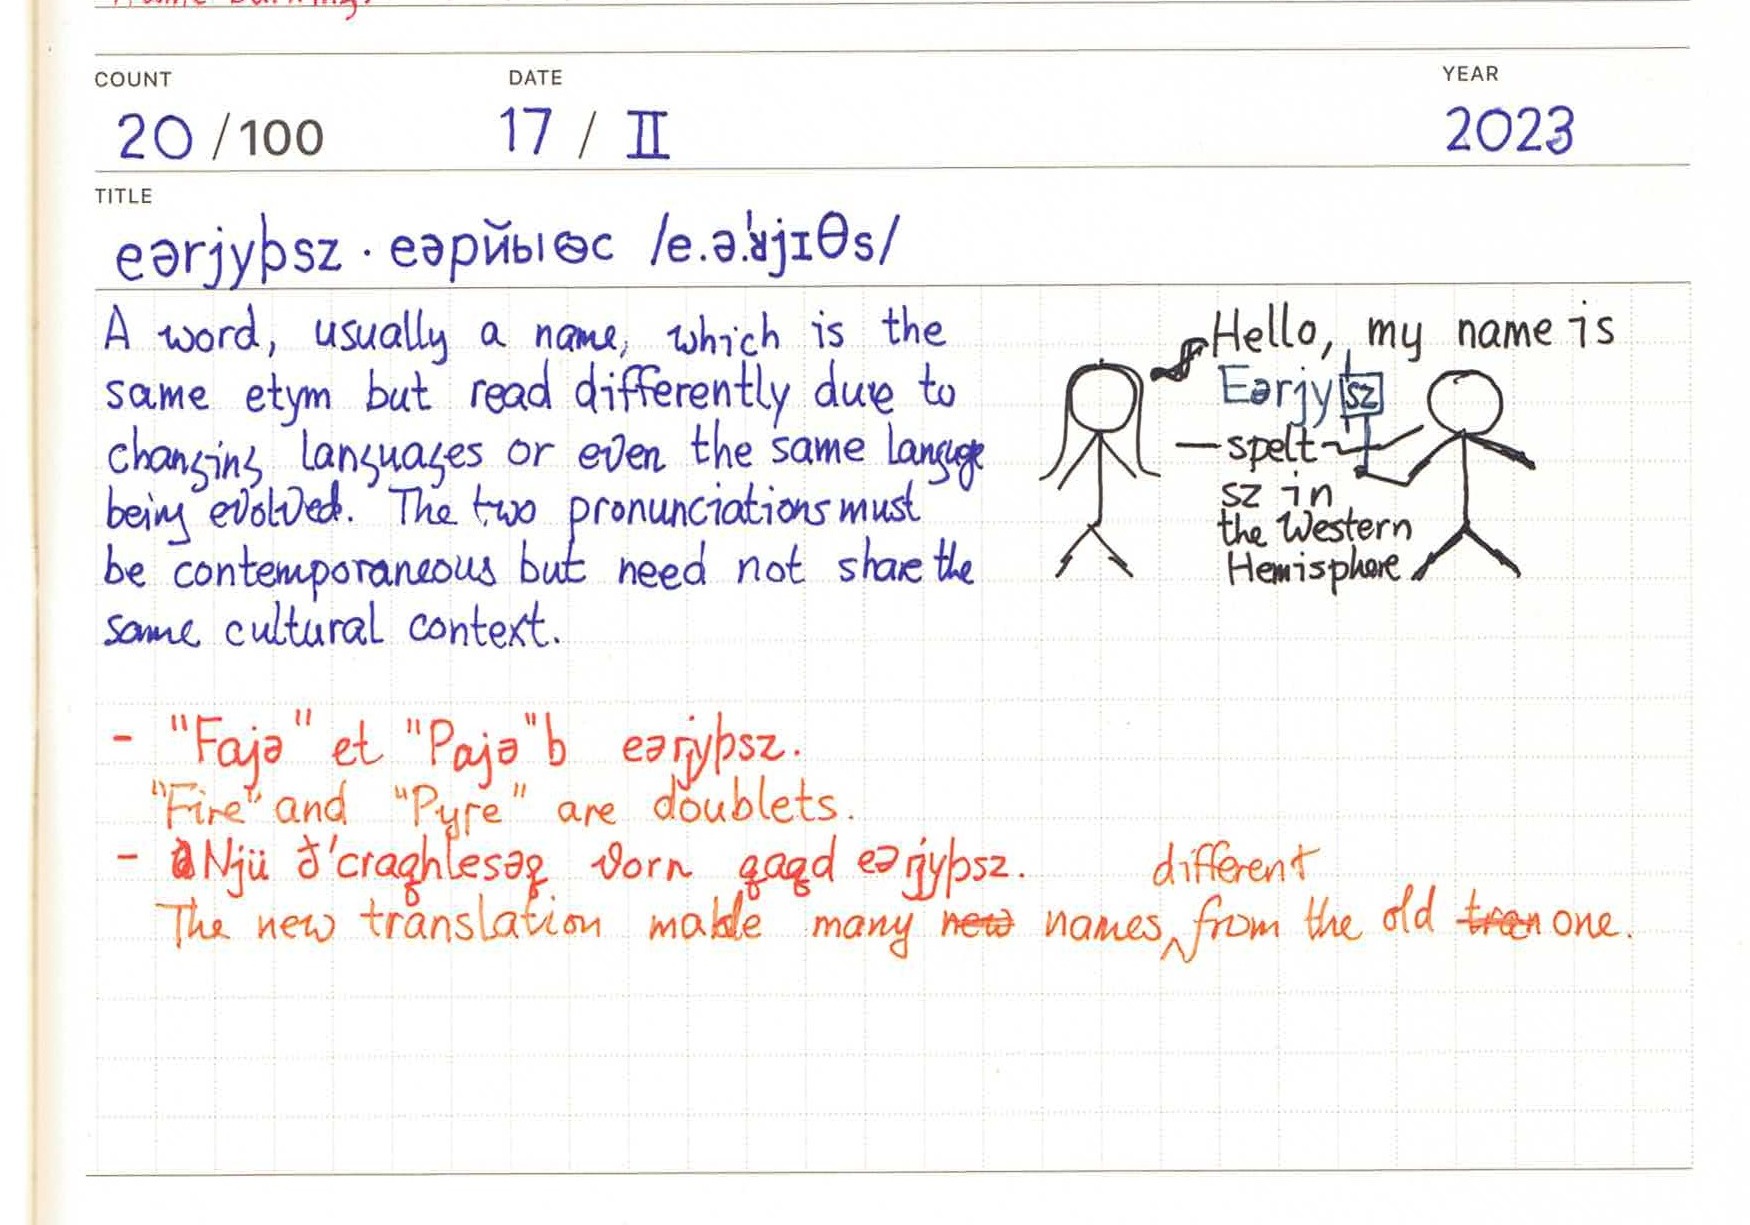 COUNT DATE YEAR
20 /100 17 / II 2023
TITLE
eərjyþsz · еәрйыѳс /e.ə.ˈʁjɪθs/
A word, usually a name, which is the
same etym but read differently due to
changing languages or even the same language
being evolved. The two pronunciations must
be contemporaneous but need not share the
same cultural context.
Hello, my name is
Eərjy sz
spelt
sz in
the Western
Hemisphere
- "Fajə" et "Pajə"b eərjyþsz.
"Fire" and "Pyre" are doublets.
- Njü ð'craqhlesəq vorn qaqd eərjyþsz.
different
The new translation made many new names from the old tran one.